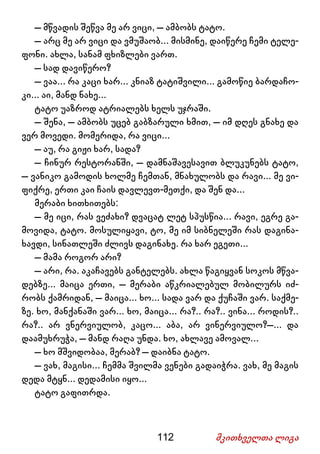 — მწვადის შეწვა მე არ ვიცი, — ამბობს ტატო.
— არც მე არ ვიცი და ვშუშაობ... მისმინე, დაიწერე ჩემი ტელე-
ფონი. ახლა, სანამ ფხიზლები ვართ.
— სად დავიწერო?
— ვაა... რა კაცი ხარ... კნიაზ ტატიშვილი... გამოწიე ბარდაჩო-
კი... აი, მანდ ნახე...
ტატო უაზროდ ატრიალებს ხელს უჯრაში.
— შენა, — ამბობს უცებ გაბზარული ხმით, — იმ დღეს გნახე და
ვერ მოვედი. მომერიდა, რა ვიცი...
— აუ, რა გიჟი ხარ, სადა?
— ჩინურ რესტორანში, — დამნაშავესავით ბლუკუნებს ტატო,
— ვანიკო გამოდის ხოლმე ჩემთან, მნახულობს და რავი... მე ვი-
ფიქრე, ერთი კაი ჩაის დავლევთ-მეთქი, და შენ და...
მერაბი ხითხითებს:
— მე იცი, რას ვეძახი? დვაცატ ლეტ სპუსწია... რავი, ეგრე გა-
მოვიდა, ტატო. მოსულიყავი, ტო, მე იმ სიბნელეში რას დაგინა-
ხავდი, სინათლეში ძლივს დაგინახე. რა ხარ ეგეთი...
— მამა როგორ არი?
— არი, რა. აკაჩავებს განტელებს. ახლა წაგიყვან სოკოს მწვა-
დებზე... მაიცა ერთი, — მერაბი აწკრიალებულ მობილურს იძ-
რობს ქამრიდან, — მაიცა... ხო... სადა ვარ და ქუჩაში ვარ. საქმე-
ზე. ხო, მანქანაში ვარ... ხო, მაიცა... რა?.. რა?.. ვინა... როდის?..
რა?.. არ ვნერვიულობ, კაცო... აბა, არ ვინერვიულო?—... და
დაამუხრუჭა, — მანდ რაღა უნდა. ხო, ახლავე ამოვალ...
— ხო მშვიდობაა, მერაბ? — დაიბნა ტატო.
— ვახ, მაგისი... ჩემმა შვილმა ვენები გადაიჭრა. ვახ, მე მაგის
დედა მტყნ... დედამისი იყო...
ტატო გაფითრდა.
112 მკითხველთა ლიგა